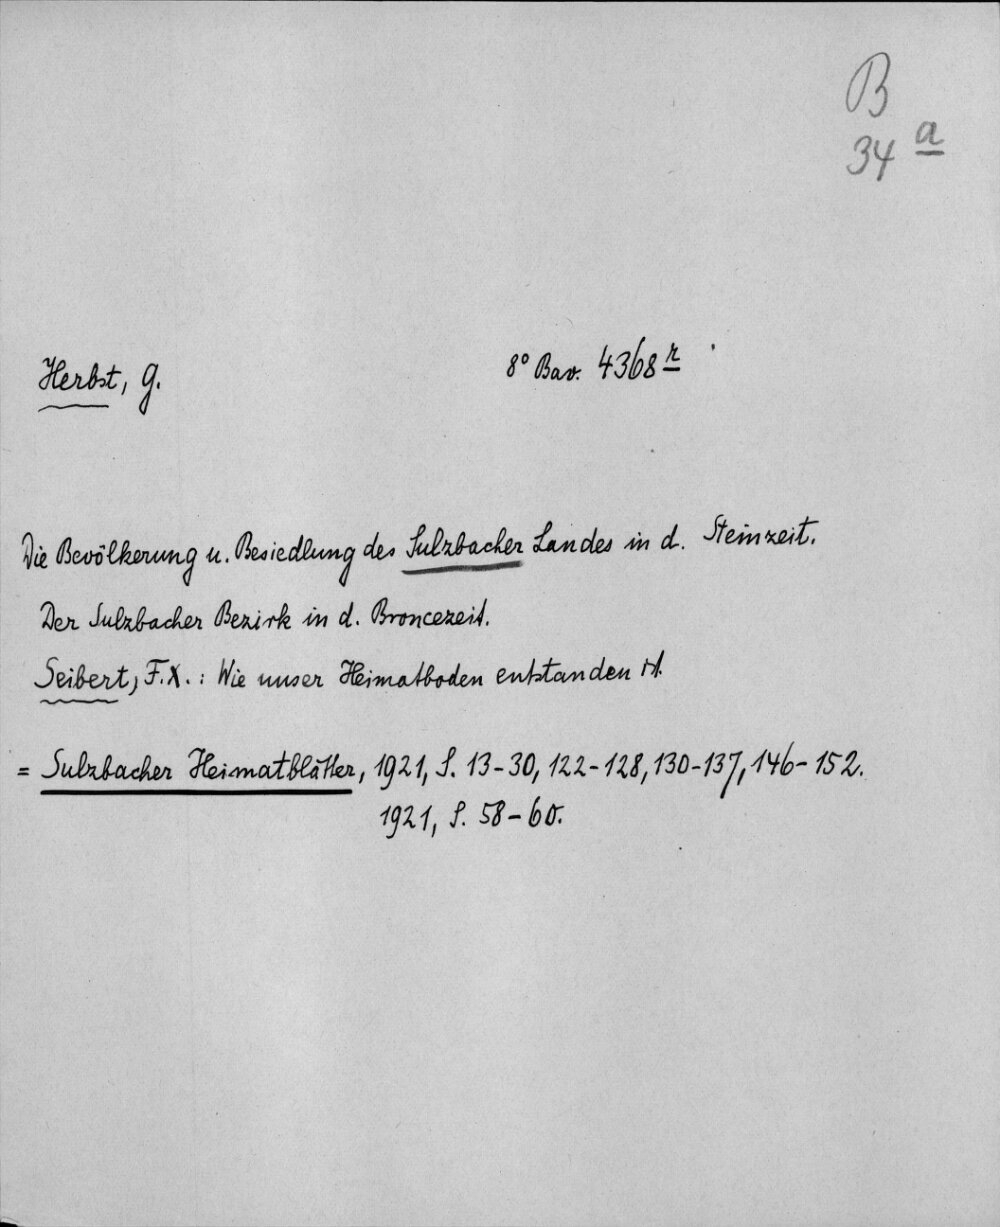 B
34 a
Herbst, G. 8° Bav. 4368 r
Die Bevölkerung u. Besiedlung des Sulzbacher Landes in d. Steinzeit.
Der Sulzbacher Bezirk in d. Broncezeit.
Seibert, F.X.: Wie unser Heimatboden entstanden ist.
= Sulzbacher Heimatblätter, 1921, S. 13-30, 122-128, 130-137, 146-152.
1921, S. 58-60.